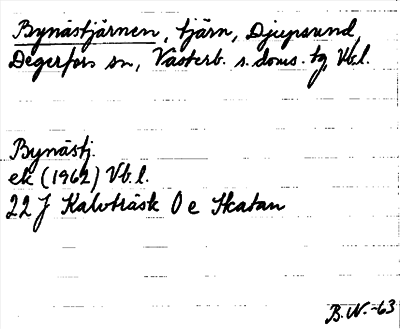 Bynästjärnen, tjärn, Djupsund,
Degerfors sn, Västerb. s. doms. tg, Vb.l.
Bynästj.
ek (1962) Vb.l.
22 J Kalvträsk 0 e Skatan
B.N.-63